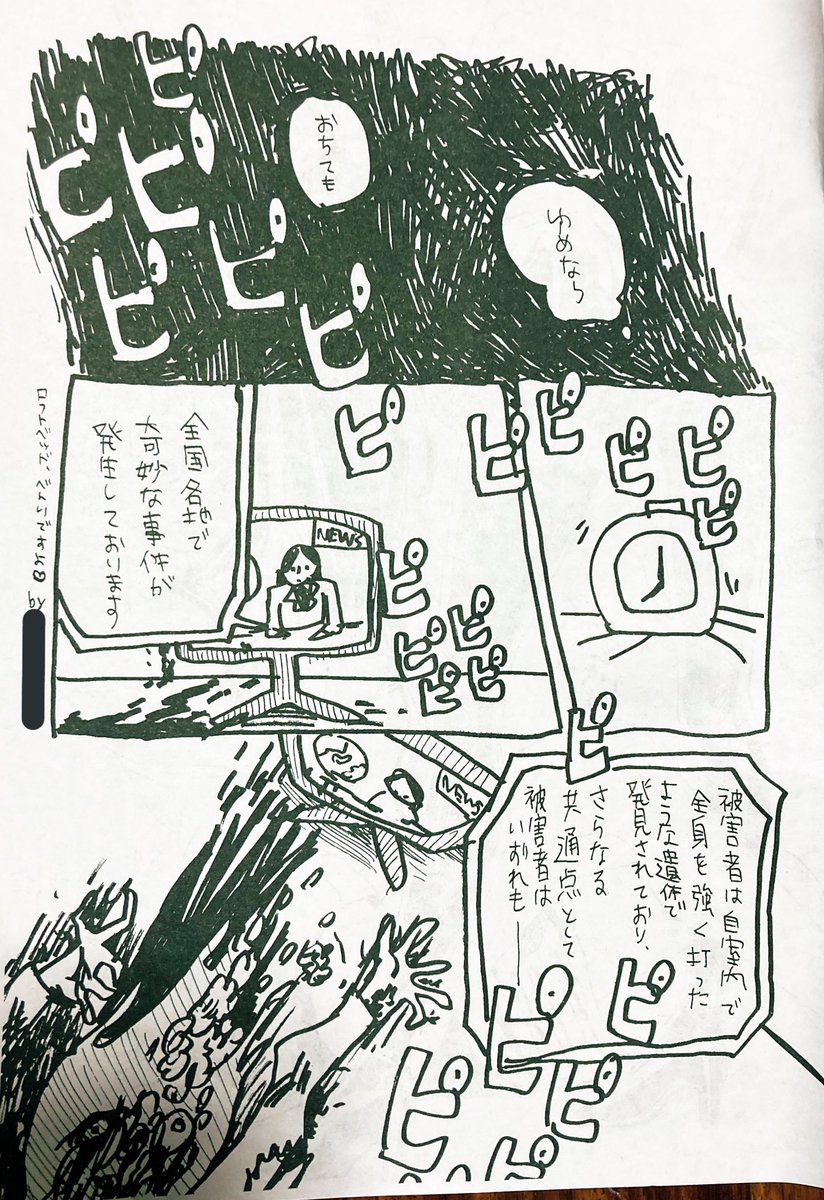 ゆめなら
おちても
ピ
ピ
ピ
ピ
ピ
ピ
ピ
ピ
ピ
ピ
ピ
ピ
NEWS
全国各地で
奇妙な事件が
発生しております
ピ
ピ
ピ
ピ
ピ
NEWS
ピ
被害者は自室内で
全身を強く打った
ような遺体で
発見されており、
さらなる
共通点として
被害者は
いずれも──
ピ
ピ
ピ
ピ
ピ
ロフトベッド、べんりですよ
by